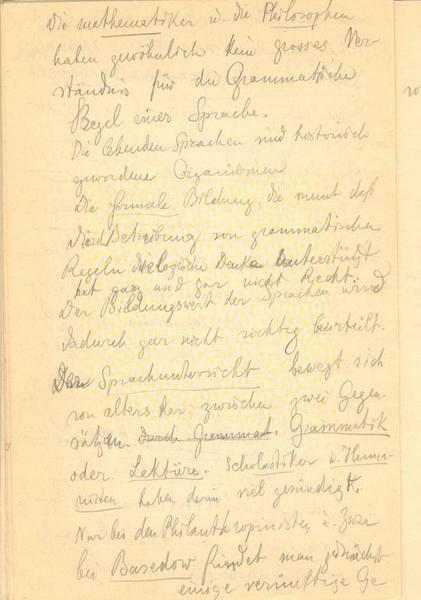 Die mathematiker u. die Philosophen
haben gewöhnlich kein grosses Ver-
ständnis für die Grammatische
Regel einer Sprache.
Die lebenden Sprachen sind historisch
gewordene Organismen
Die formale Bildung, die meint daß
die Betreibung von grammatischen
Regeln die logische Denken unterstützt
hat ganz und gar nicht Recht.
Der Bildungswert der Sprachen wird
dadurch gar nicht richtig beurteilt.
Der Sprachunterricht bewegt sich
von alters her zwischen zwei Gegen-
sätzen. Durch Grammat. Grammatik
oder Lektüre. Scholastiker u. Huma-
nisten haben darin viel gesündigt.
Nur bei den Philanthropinisten u. zwar
bei Basedow findet man zunächst
einige vernünftige Ge